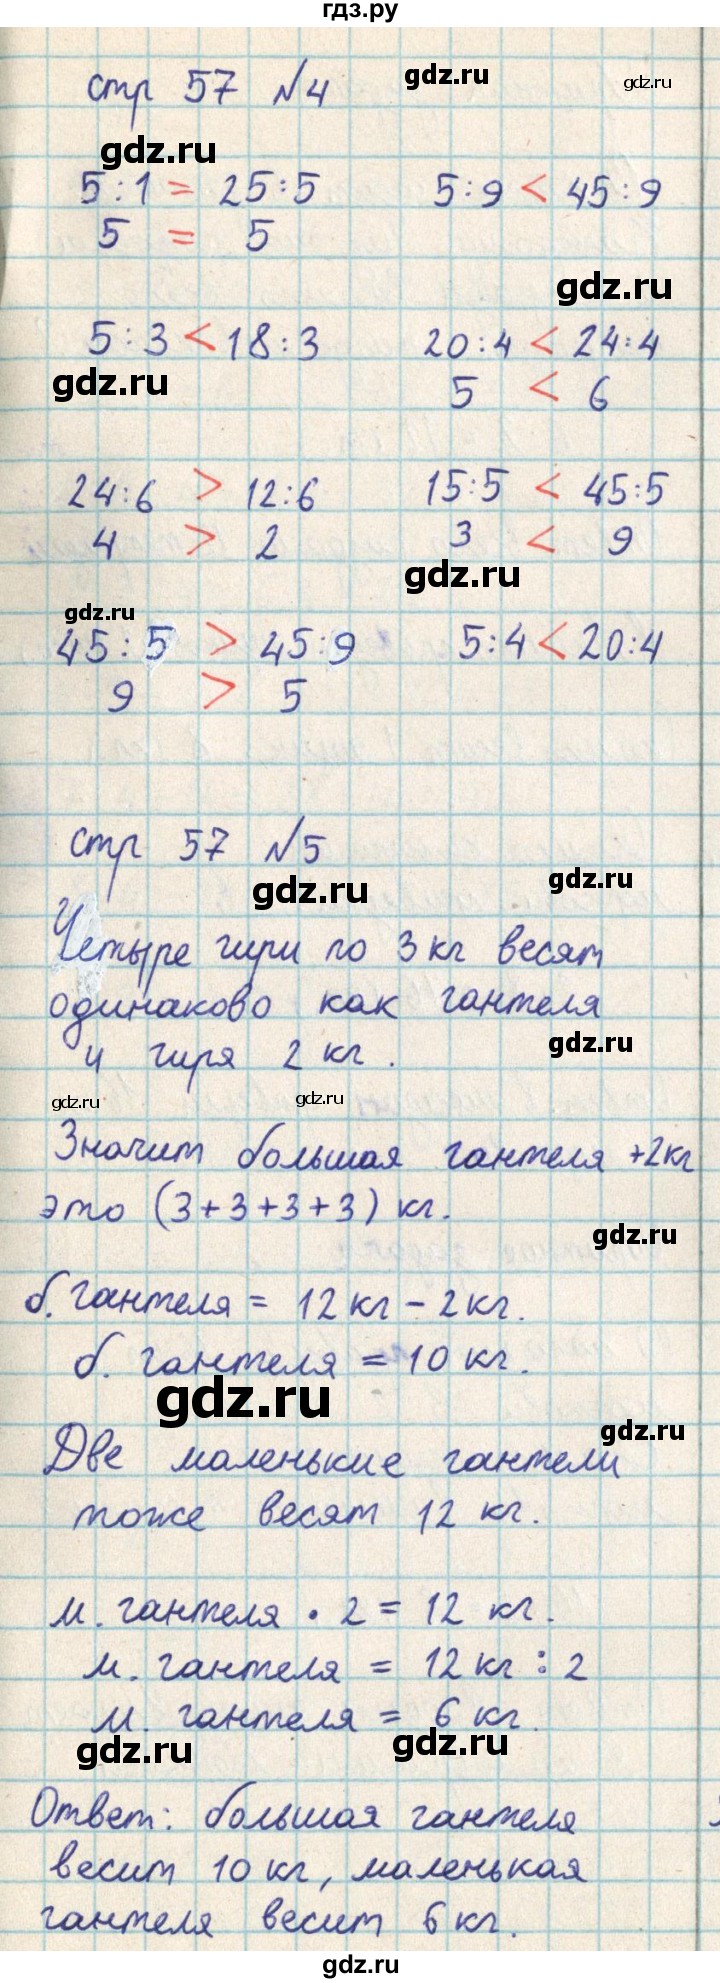 гдз.ру
стр 57 №4
gdz.ru
gdz.ru
gdz.ru
5:1 = 25:5 5:9 < 45:9
5 = 5
gdz.ru
5:3 < 18:3 20:4 < 24:4
gdz.ru
5 < 6
24:6 > 12:6 15:5 < 45:5
4 > 2 3 < 9
gdz.ru
gdz.ru
45:5 > 45:9 5:4 < 20:4
9 > 5
стр 57 №5
gdz.ru
gdz.ru
Четыре гири по 3 кг весят
одинаково как гантеля
и гиря 2 кг.
gdz.ru
gdz.ru
gdz.ru
Значит большая гантеля +2кг
это (3+3+3+3) кг.
gdz.ru
б. гантеля = 12 кг - 2 кг.
б. гантеля = 10 кг.
gdz.ru
gdz.ru
Две маленькие гантели
тоже весят 12 кг.
м. гантеля · 2 = 12 кг.
м. гантеля = 12 кг : 2
м. гантеля = 6 кг.
gdz.ru
gdz.ru
Ответ: большая гантеля
весит 10 кг, маленькая
гантеля весит 6 кг.
gdz.ru